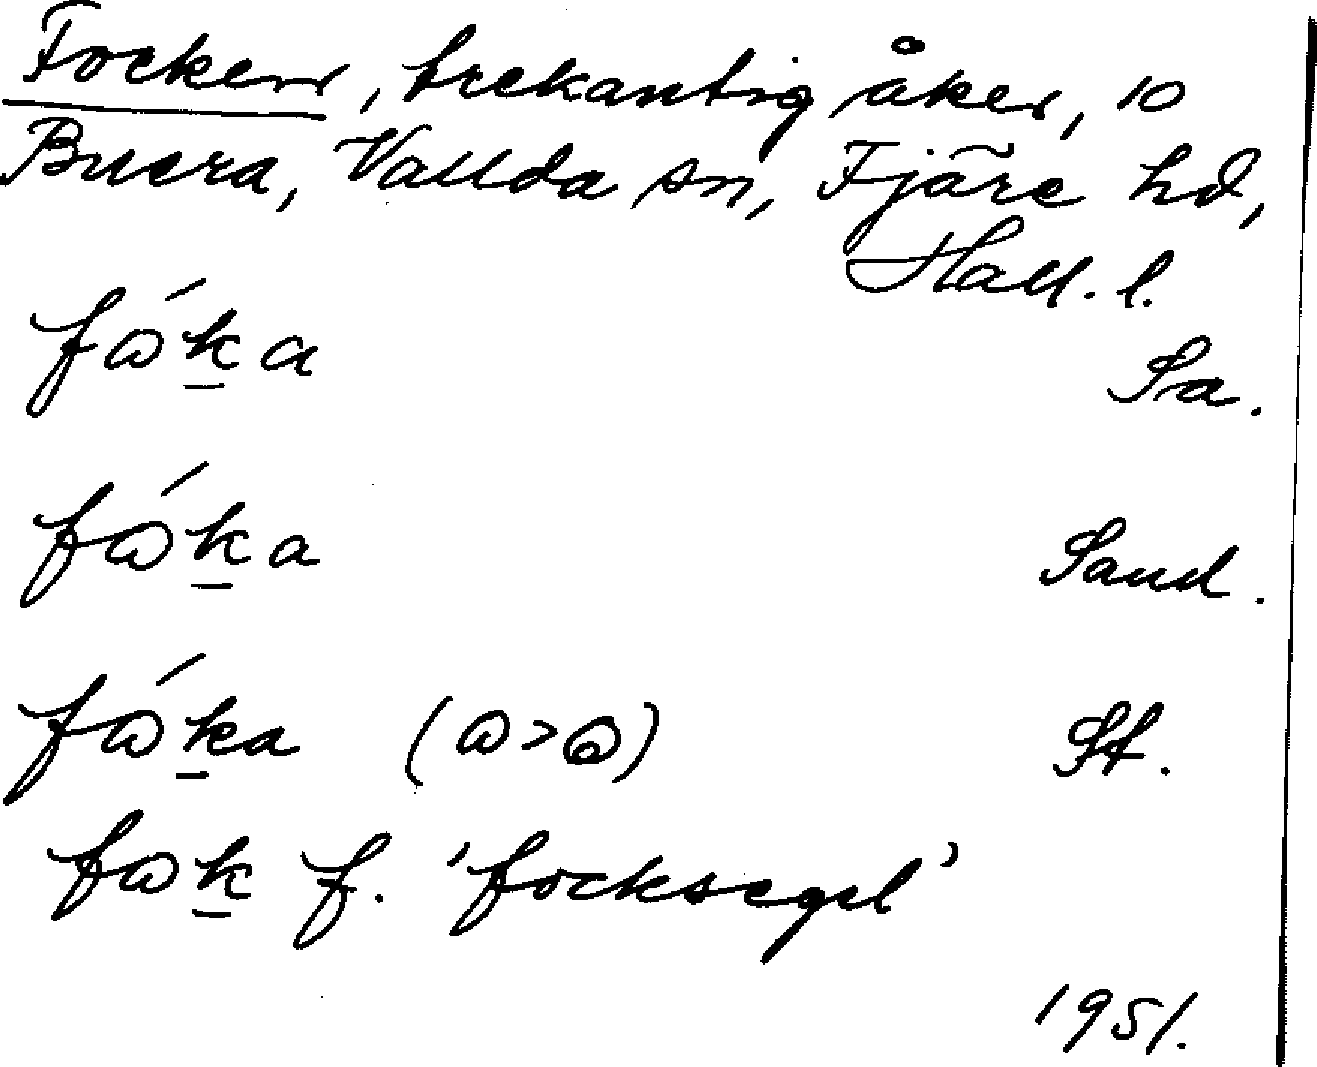 Focken, trekantig åker, 10
Buera, Vallda sn, Fjäre hd,
Hall. l.
fɷ́k̲a Sa.
fɷ́k̲a Sand.
fɷ́k̲a (ɷ>) St.
fɷk̲ f. 'focksegel'
1951.